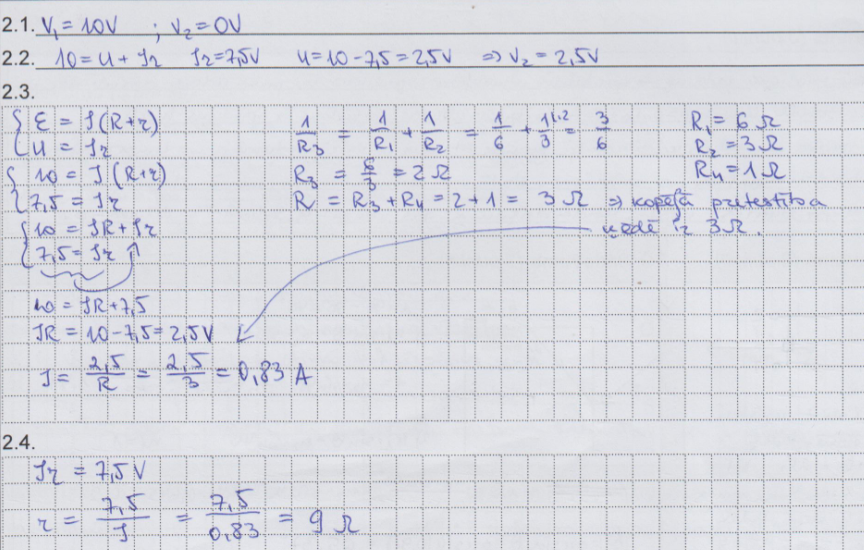 2.1. V₁ = 10V ; V₂ = 0V
2.2. 10 = U + Ir Ir = 7,5V U = 10 - 7,5 = 2,5V ⇒ V₂ = 2,5V
2.3.
{ ε = I(R+r)
{ U = Ir
{ 10 = I(R+r)
{ 7,5 = Ir
{ 10 = IR + Ir
{ 7,5 = Ir
10 = IR + 7,5
IR = 10 - 7,5 = 2,5V
I = 2,5/R = 2,5/3 = 0,83 A
1/R₃ = 1/R₁ + 1/R₂ = 1/6 + 1/3 ^(1·2) = 3/6
R₃ = 6/3 = 2 Ω
R = R₃ + R₄ = 2 + 1 = 3 Ω ⇒ kopējā pretestība
ķēdē ir 3Ω.
R₁ = 6 Ω
R₂ = 3 Ω
R₄ = 1 Ω
2.4.
Ir = 7,5 V
r = 7,5/I = 7,5/0,83 = 9 Ω